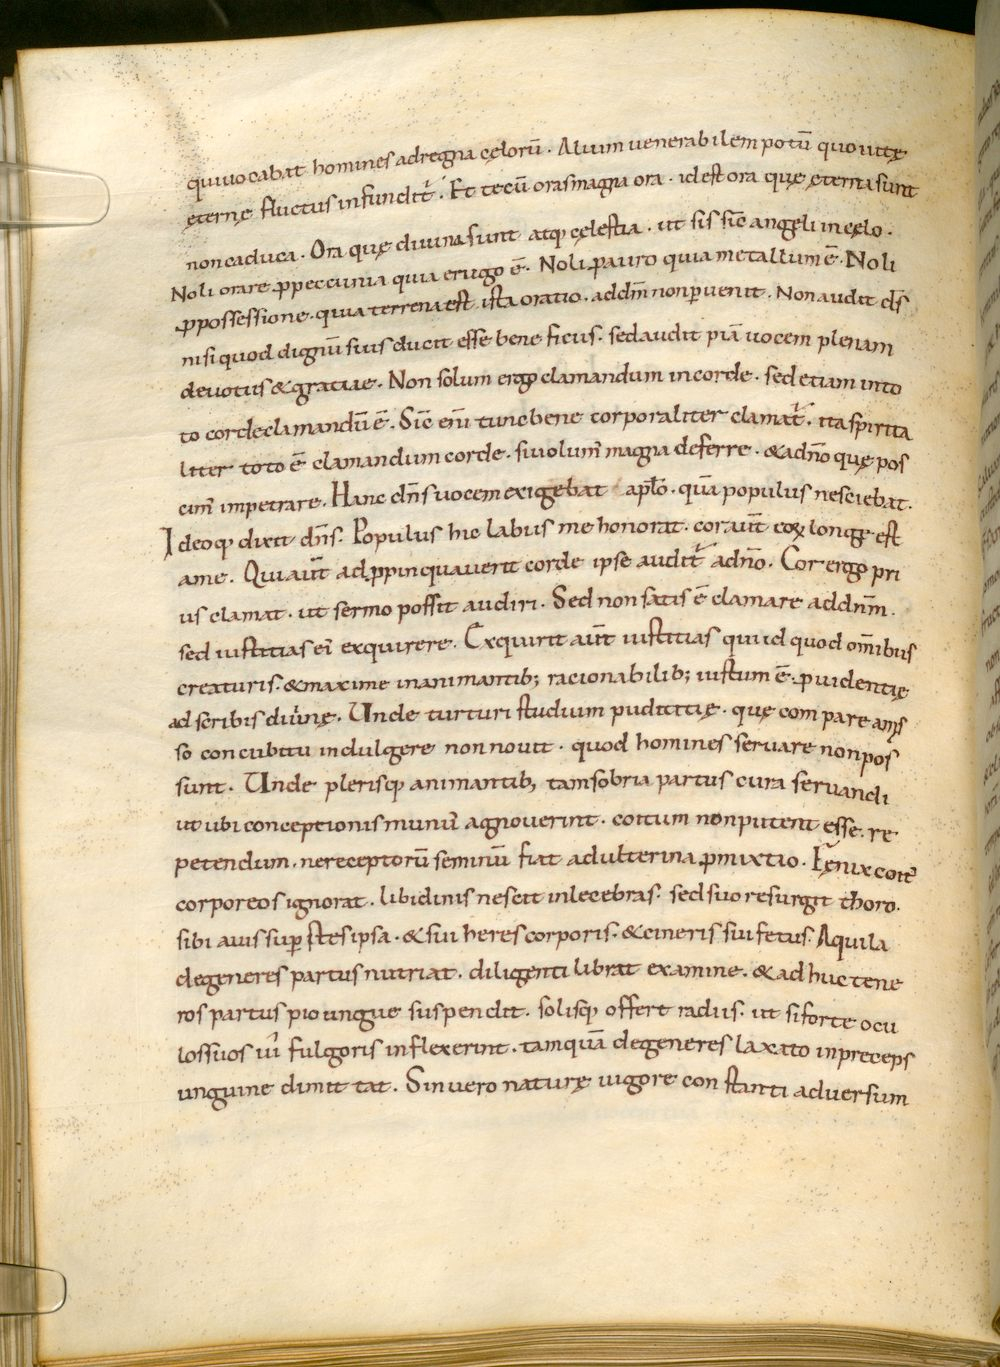 qui uocabat homines ad regna cęlorū. Alium uenerabilem potū quo uitę
ęternę fluctus infundit̄. Et tecū oras magna ora. id est ora quę ęterna sunt
non caduca. Ora quę diuina sunt atq; cęlestia. ut sis sic̄ angeli in cęlo.
Noli orare ꝓ peccunia quia erugo ē. Noli ꝓ auro quia metallum ē. Noli
ꝓ possessione. quia terrena est ista oratio. ad dn̄m non ꝑuenit. Non audit ds̄
nisi quod dignū suis ducit esse beneficus. sed audit piā uocem plenam
deuotus & gratiae. Non solum ergo clamandum in corde. sed etiam in to
to corde clamandū ē. Sic̄ eni᷈ tunc bene corporaliter clamat̄. ita spirita
liter toto ē clamandum corde. si uolum᷈ magna deferre. & a dn̄o quę pos
cim᷈ impetrare. Hanc dn̄s uocem exigebat apl̄o. quā populus nesciebat.
Ideoq; dixit dn̄s. Populus hic labiis me honorat. cor aut̄ eoꝝ longe est
a me. Qui aut̄ adꝓpinquauerit corde ipse audit̄ a dn̄o. Cor ergo pri
us clamat. ut sermo possit audiri. Sed non satis ē clamare ad dn̄m.
sed iustitias ei᷈ exquirere. Exquirit aut̄ iustitias qui id quod om̄ibus
creaturis. & maxime inanimantib; racionabilib; iustum ē. ꝓuidentię
adscribis diuinę. Unde turturi studium pudititię. quę compare amis
so concubitu indulgere non nouit. quod homines seruare non pos
sunt. Unde plerisq; animantib; tam sobria partus cura seruandi
ut ubi conceptionis munus agnouerint. coitum non putent ęsse re
petendum. ne receptorū seminū fiat adulterina ꝑmixtio. Fęnix coit᷈
corporeos ignorat. libidinis nescit inlecebras. sed suo resurgit thoro.
sibi auis suꝑstes ipsa. & sui heres corporis. & cineris sui fetus. Aquila
degeneres partus nutriat. diligenti librat examine. & adhuc tene
ros partus pio ungue suspendit. solisq; offert radiis. ut si forte ocu
los suos ui᷈ fulgoris inflexerint. tamquā degeneres laxato in preceps
unguine dimittat. Sin uero naturę uigore constanti aduersum